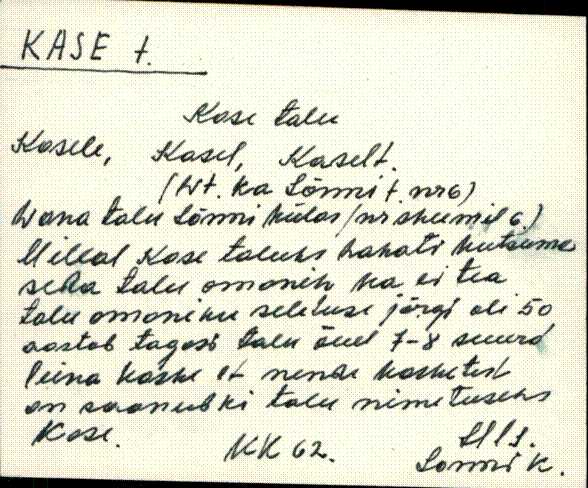 KASE t.
Kase talu
Kasele, Kasel, Kaselt.
(Vt. ka Lõnni t. nr 6)
Vana talu Lõnni külas (nr skeemil 6)
Millal Kase taluks hakati kutsuma
seda talu omanik ka ei tea
talu omaniku seletuse järgi oli 50
aastat tagasi talu õuel 7-8 suurt
leina kaske et nende kaskedest
on saanudki talu nimetuseks
Kase.
KK 62.
Lonni k.